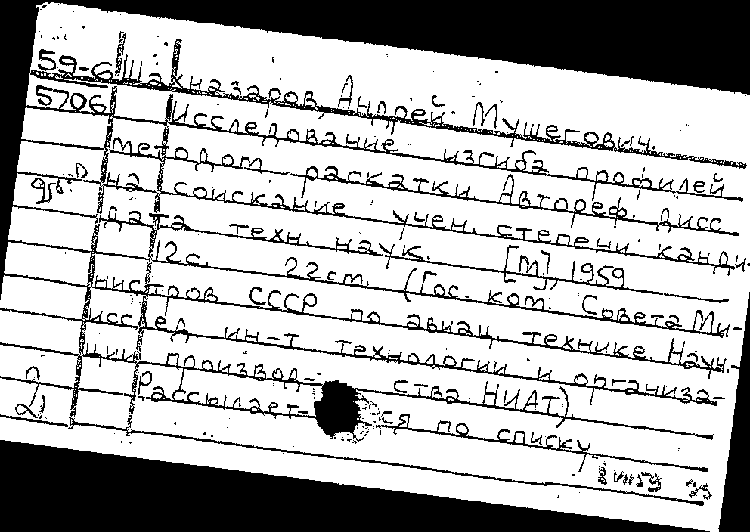 59-6 Шахназаров, Андрей Мушегович.
5706 Исследование изгиба профилей
методом раскатки. Автореф. дисс.
на соискание учен. степени канди-
дата техн. наук. [М], 1959
12с. 22см. (Гос. ком. Совета Ми-
нистров СССР по авиац. технике. Научн.-
исслед ин-т технологии и организа-
ции производ- ства НИАТ)
Рассылает- ся по списку